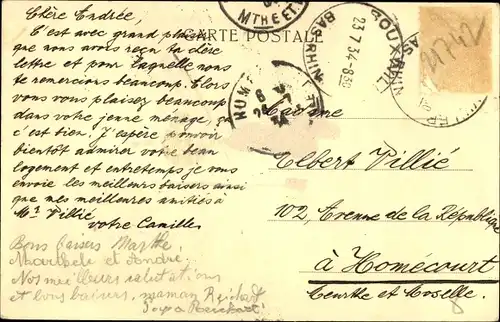 Chère Andrée,
C'est avec grand plaisir
que nous avons reçu ta chère
lettre et pour laquelle nous
te remercions beaucoup. Alors
vous vous plaisez beaucoup
dans votre jeune ménage, ça
c'est bien. J'espère pouvoir
bientôt admirer votre beau
logement et entretemps je vous
envoie les meilleurs baisers ainsi
que mes meilleures amitiés à
Mr Pillié
votre Camille
Bons baisers Marthe,
et André.
Nos meilleurs salutations
et bons baisers, maman Reichart
Papa Reichart
CARTE POSTALE
MTHE ET
23.7.34-8 30
BAS RHIN
SOUX
BAS RHIN
21742
Madame
Albert Pillié
102, Avenue de la République
à Homécourt
Meurthe et Moselle.